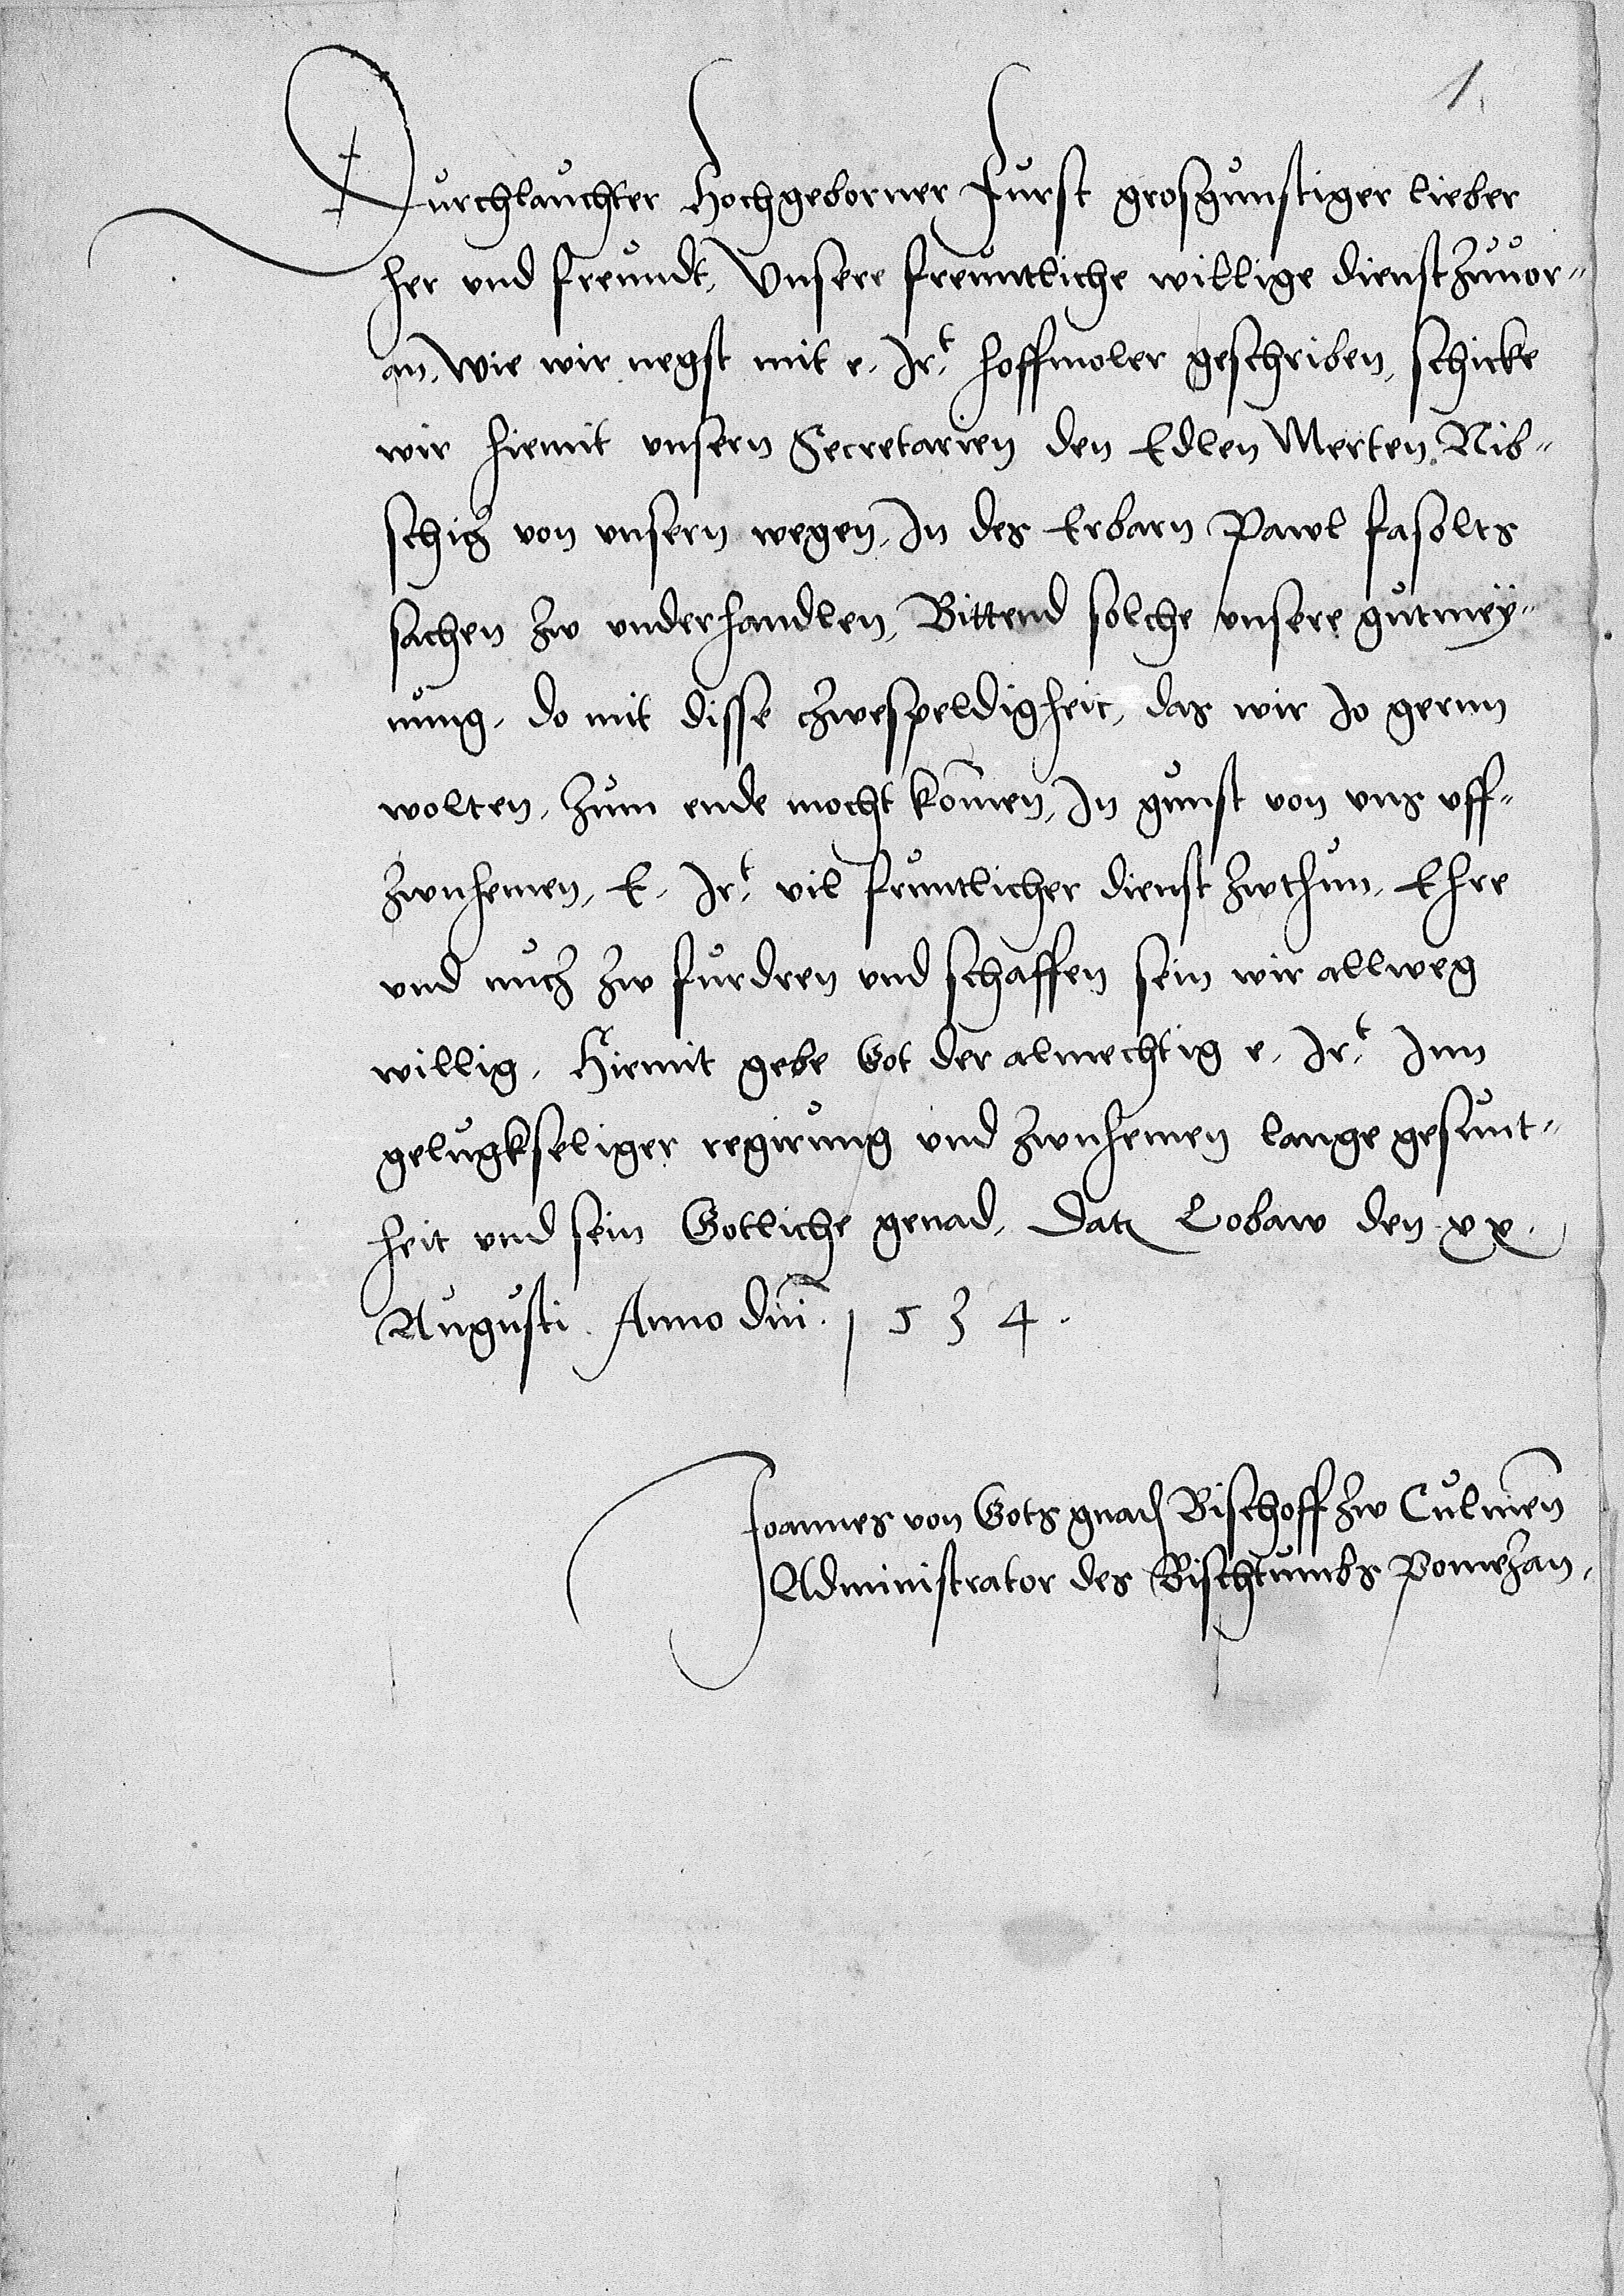 1.
Durchlauchter Hochgeborner Furst grosgunstiger lieber
her vnd freundt, Vnsere freuntliche willige dienst zuuor¬
an, Wie wir negst mit e. Irt. hoffmoler geschriben, schicke
wir hiemit vnsern Secretarien den Edlen Merten Nib¬
schitz von vnsern wegen, In des Erbarn Pawl fasolts
sachen zw vnderhandlen, Bittend solche vnsere gutmey¬
nung, do mit disse zwespeldigheit, das wir Io gernn
wolten, zum ende mocht komen, In gunst von vns vff¬
zwnhemen, E. Irt. vil fruntlicher dienst zwthun, Ehre
vnd nucz zw furdren vnd schaffen sein wir allweg
willig, Hiemit gebe Got der almechtig e. Irt. Inn
gelugkseliger regirung vnd zwnhemen lange gesunt¬
heit vnd sein Gotliche genad, Datum Lobaw den xx.
Augusti. Anno dni. 1534.
Joannes von Gots gnad Bischoff zw Culmen
Administrator des Bischtumbs Pomezan.